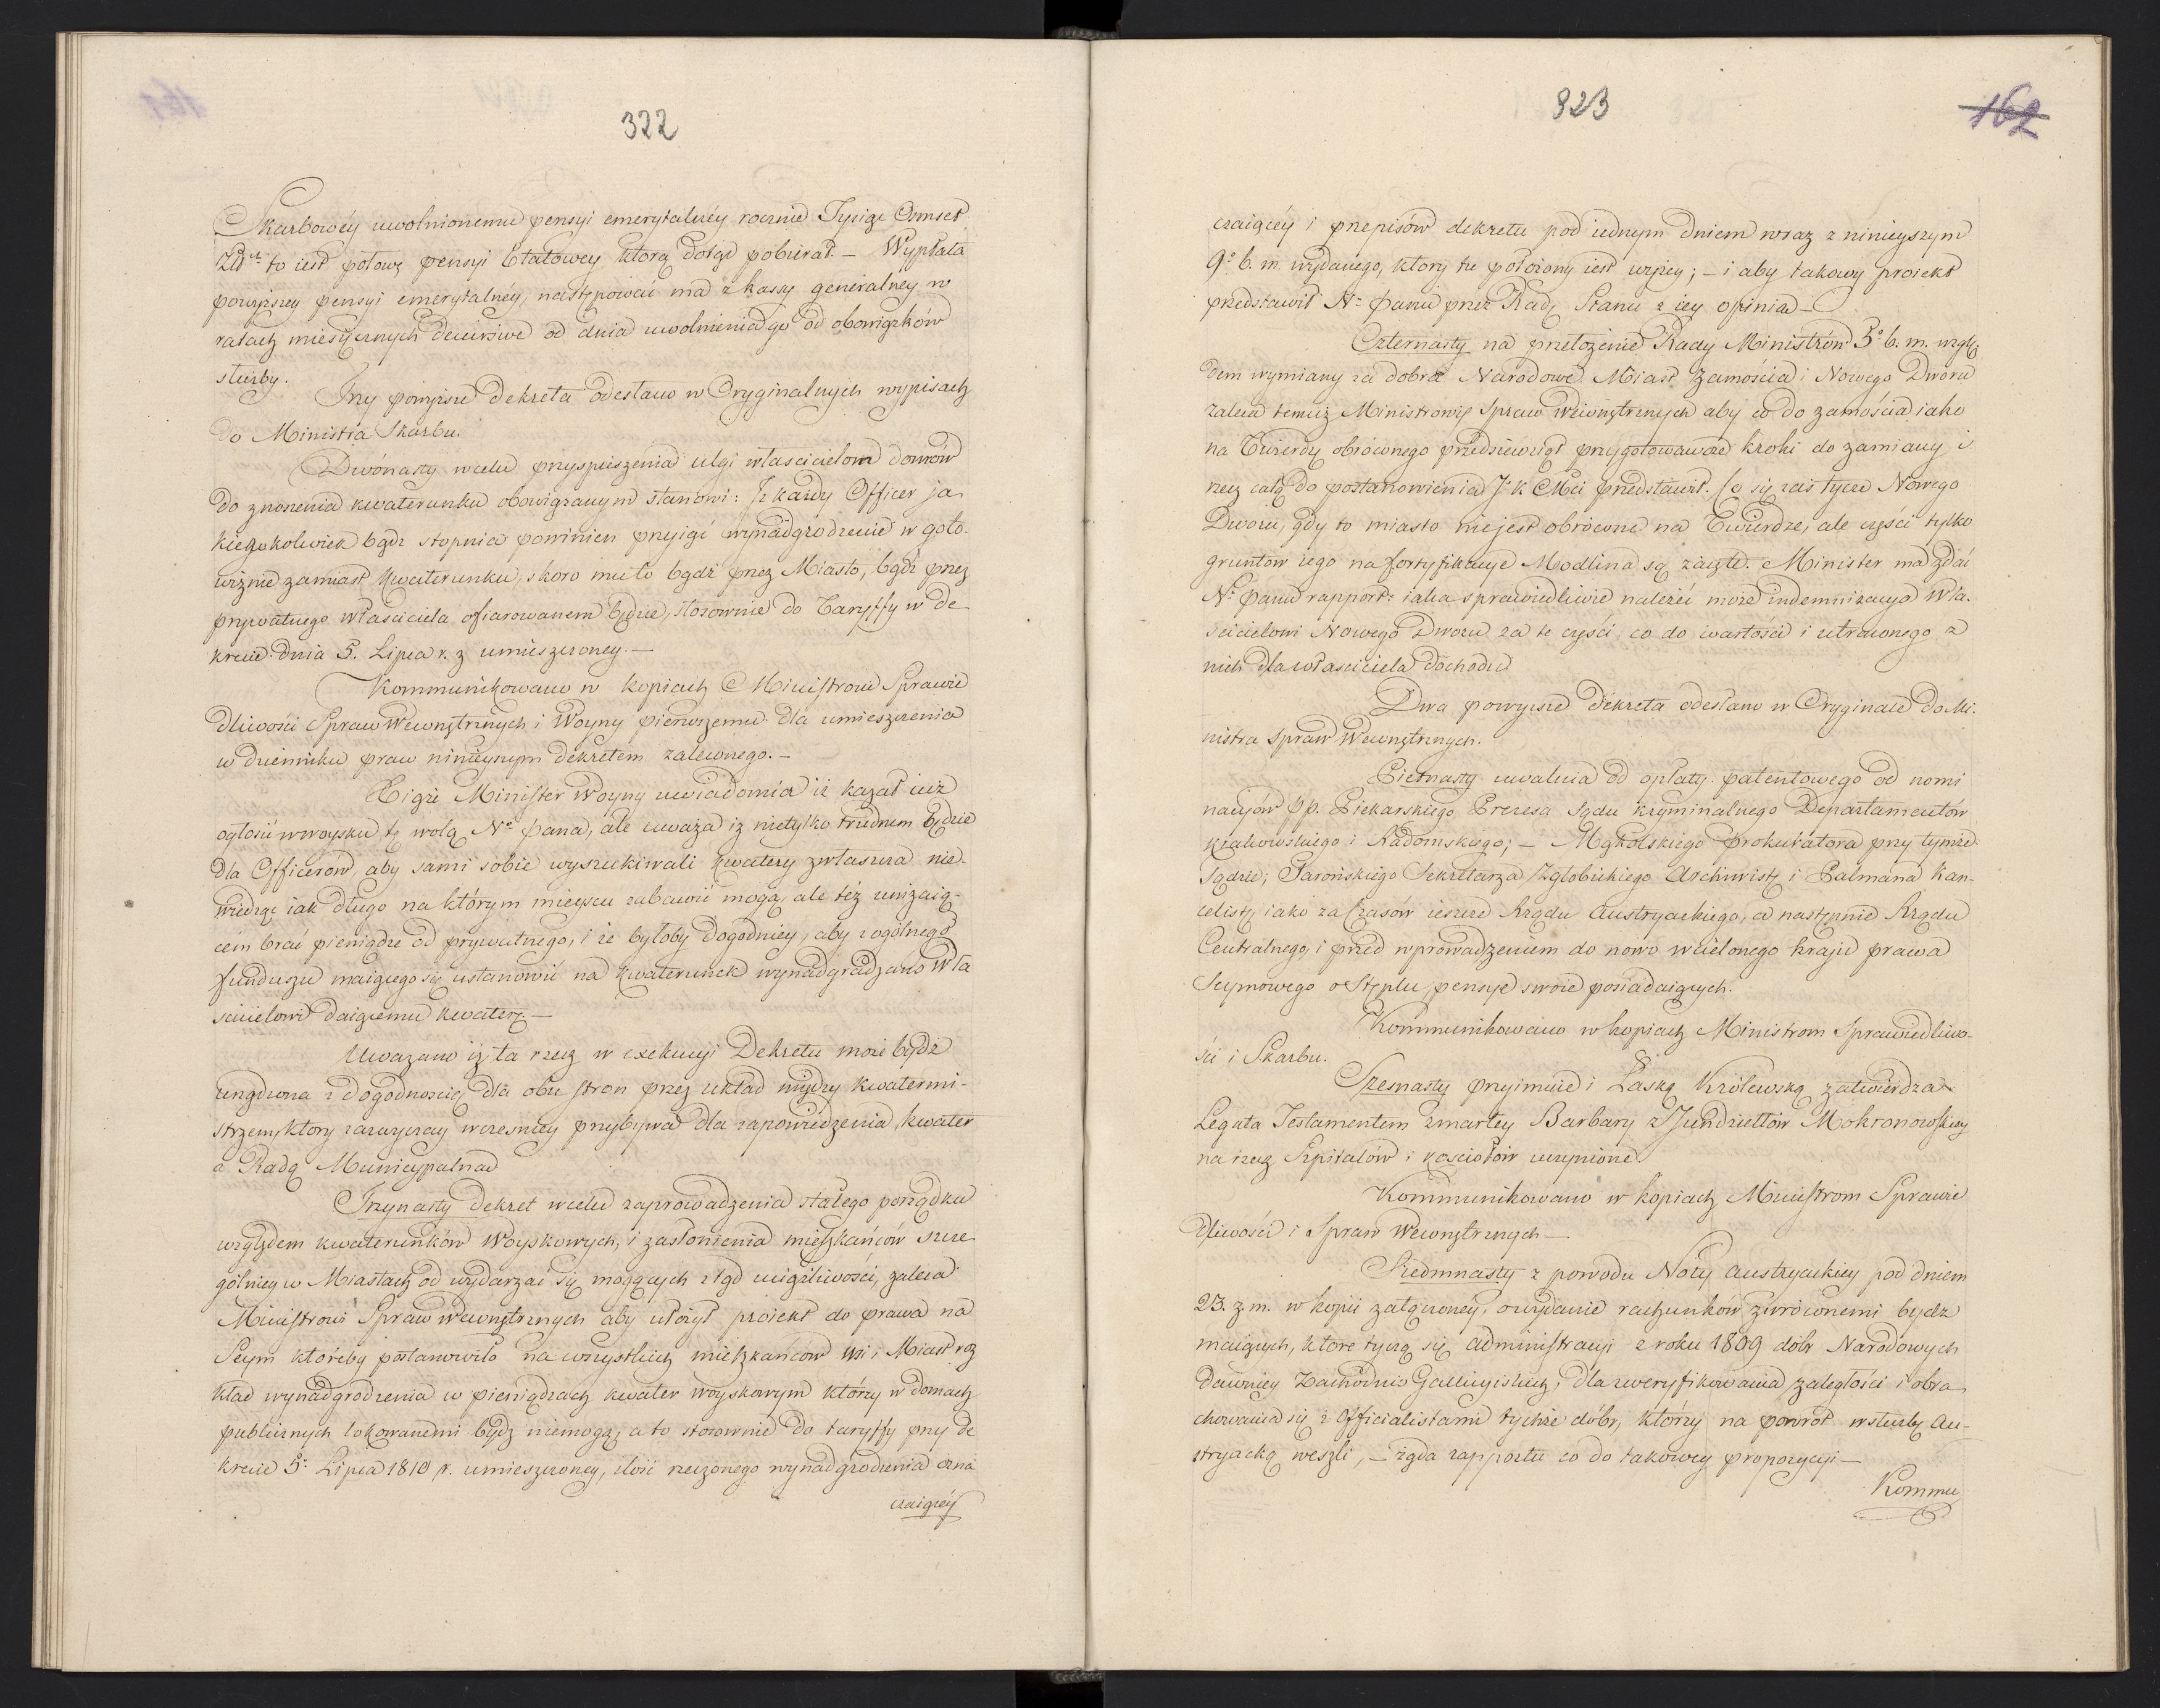 322
Skarbowéy uwolnionemu pensyi emerytalnéy rocznie Tysiąc Osmset
Zł. to iest połowę pensyi Etatowey którą dotąd pobierał. – Wypłata
powyższey pensyi emerytalnéy następować ma z kassy generalney w
ratach miesięcznych decursive od dnia uwolnienia go od obowiązków
służby.
Trzy powyższe Dekreta odesłano w Oryginalnych wypisach
do Ministra Skarbu.
Dwónasty w celu przyspieszenia ulgi włascicielom domów
do znoszenia kwaterunku obowiązanym stanowi: Iż każdy Officer ja
kiegokolwiek bądz stopnia powinien przyiąć wynadgrodzenie w goto-
wiznie zamiast kwaterunku, skoro mu to bądź przez Miasto, bądź przez
prywatnego właściciela ofiarowanem będzie, stosownie do Taryffy w De
krecie dnia 5. Lipca r. z umieszczoney. –
Kommunikowano w kopiach Ministrom Sprawie
dliwości Spraw Wewnętrznych i Woyny pierwszemu dla umieszczenia
w dzienniku praw ninieyszym dekretem zaleconego. –
Tigże Minister Woyny uwiadomia iż kazał iuż
ogłosić w woysku tę wolą N° Pana, ale uważa iż nietylko trudnem będzie
dla Officerów, aby sami sobie wyszukiwali kwatery zwłaszcza nie-
wiedząc iak długo na którym mieyscu zabawić mogą, ale też uniżaią-
cém brać pieniądze od prywatnego, i że byłoby dogodniey, aby z ogólnego
funduszu maiącego się ustanowić na kwaterunek wynadgradzano Wła
scicielowi daiącemu kwaterę. –
Uważano iż ta rzecz w exekucyi Dekretu może bydź
urządzona z dogodnością dla obu stron przez układ między kwatermi-
strzem, ktory zazwyczay wcześniey przybywa dla zapowiedzenia kwater
a Radą Municypalną
Trzynasty dekret w celu zaprowadzenia stałego porządku
względem kwaterunków Woyskowych, i zasłonienia mieszkańców szcze
gólniey w Miastach od wydarzać się mogących ztąd uciążliwości, zaleca
Ministrowi Spraw Wewnętrznych aby ułożył proiekt do prawa na
Seym któreby postanowiło na wszystkich mieszkańców wsi i Miast roz
kład wynadgrodzenia w pieniądzach kwater woyskowym którzy w domach
publicznych lokowanemi bydz niemogą, a to stosownie do taryffy przy de
krecie 5° Lipca 1810 r. umieszczoney, ilość rzeczonego wynadgrodzenia ozna
czaiącéy
323
162
czaiącéy i przepisów dekretu pod iednym dniem wraz z ninieyszym
9° b. m. wydanego, który tu położony iest wyżey; – i aby takowy proiekt
przedstawił N° Panu przez Radę Stanu z iey opinią –
Czternasty na przełożenie Rady Ministrów 5° b. m. wzglę-
dem wymiany za dobra Narodowe Miast Zamościa i Nowego Dworu
zaleca temuż Ministrowi Spraw Wewnętrznych aby co do Zamościa iako
na Twierdzę obróconego przedsiewziął przygotowawcze kroki do zamiany i
rzecz całą do postanowienia J. K. Mci przedstawił. Co się zaś tycze Nowego
Dworu, gdy to miasto nie jest obrócone na Twierdzę, ale części tylko
gruntów iego na fortyfikacye Modlina są zaięte. Minister ma zdać
N° Panu rapport: iaka sprawiedliwie należeć może indemnizacya Wła-
scicielowi Nowego Dworu za te części, co do wartości i utraconego z
nich dla własciciela dochodu
Dwa powyższe Dekreta odesłano w Oryginale do Mi-
nistra Spraw Wewnętrznych.
Piętnasty uwalnia od opłaty patentowego od nomi
nacyów pp. Piekarskiego Prezesa Sądu kryminalnego Departamentów
Krakowskiego i Radomskiego; – Mąkolskiego prokuratora przy tymże
Sądzie; Parońskiego Sekretarza Zgłobickiego Archiwistę i Palmana kan-
celistę iako za czasów ieszcze Rządu Austryackiego, a następnie Rządu
Centralnego, i przed wprowadzeniem do nowo wcielonego kraju prawa
Seymowego o Stęplu, pensye swoie posiadaiących.
Kommunikowano w kopiach Ministrom Sprawiedliwo-
ści i Skarbu.
Szesnasty przyimuie i Łaską Królewską zatwierdza
Legata Testamentem zmarłey Barbary z Jundziełłów Mokronowskiey
na rzecz Szpitalów i kosciołów uczynione
Kommunikowano w kopiach Ministrom Sprawie
dliwości i Spraw Wewnętrznych –
Siedmnasty z powodu Noty Austryackiey pod dniem
23. z. m. w kopii załączoney, o wydanie rachunków zwróconemi bydz
maiących, które tyczą się administracyi z roku 1809 dóbr Narodowych
dawniey Zachodnio Gallicyiskich, dla zweryfikowania zaległości i obra
chowania się z Officialistami tychże dóbr, którzy na powrót w służbę Au-
stryacką weszli, – żąda rapportu co do takowey propozycyi –
Kommu